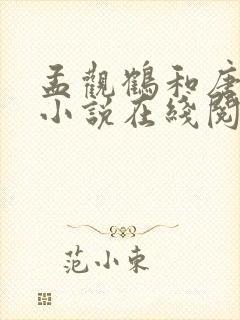 孟觀鶴和唐
小說在綫閱
范小東